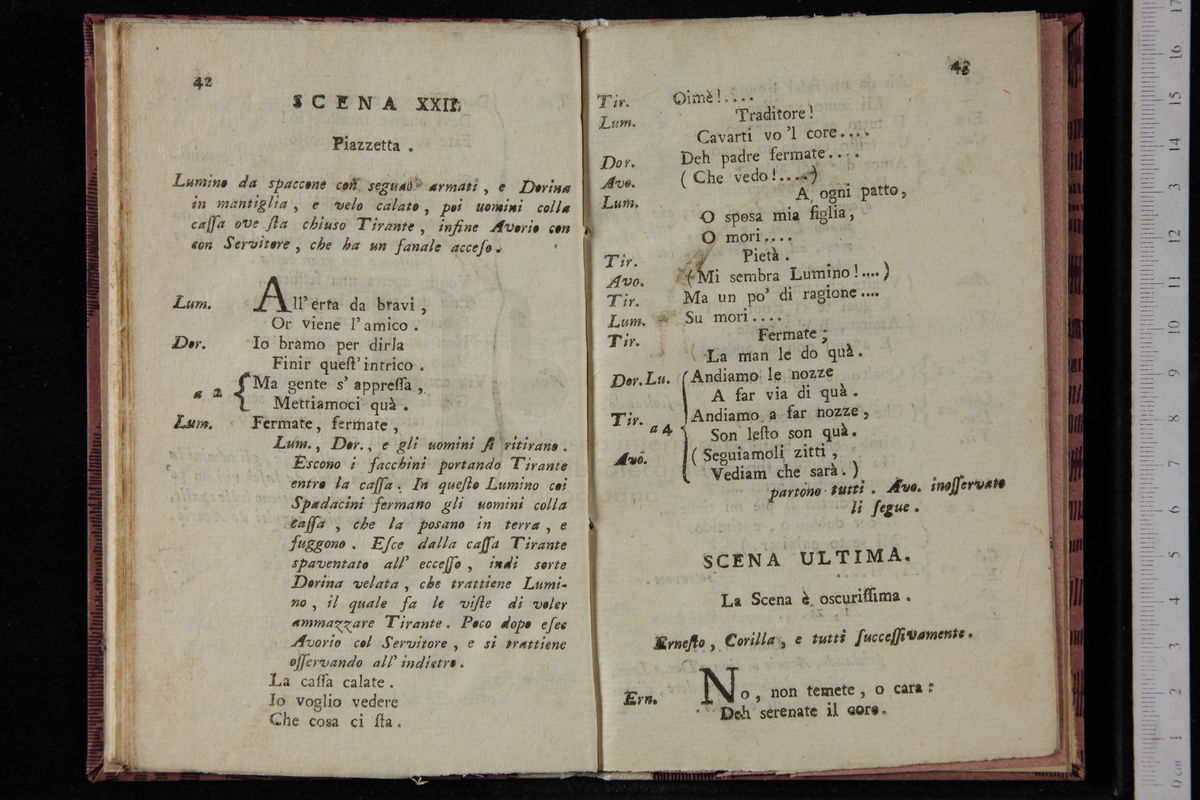 42
SCENA XXII.
Piazzetta .
Lumino da spaccone con seguaci armati , e Dorina
in mantiglia , e velo calato , poi uomini colla
cassa ove sta chiuso Tirante , infine Avorio con
con Servitore , che ha un fanale acceso .
Lum. All' erta da bravi ,
Or viene l' amico .
Dor. Io bramo per dirla
Finir quest' intrico .
a 2 { Ma gente s' appressa ,
Mettiamoci quà .
Lum. Fermate, fermate ,
Lum. , Dor. , e gli uomini si ritirano .
Escono i facchini portando Tirante
entro la cassa . In questo Lumino coi
Spadacini fermano gli uomini colla
cassa , che la posano in terra , e
fuggono . Esce dalla cassa Tirante
spaventato all' eccesso , indi sorte
Dorina velata , che trattiene Lumi-
no , il quale fa le viste di voler
ammazzare Tirante . Poco dopo esce
Avorio col Servitore , e si trattiene
osservando all' indietro .
La cassa calate .
Io voglio vedere
Che cosa ci sta .
43
Tir. Oimè ! . . . .
Lum. Traditore !
Cavarti vo 'l core . . . .
Dor. Deh padre fermate . . . .
Avo. ( Che vedo ! . . . . )
Lum. A ogni patto ,
O sposa mia figlia ,
O mori . . . .
Tir. Pietà .
Avo. ( Mi sembra Lumino ! . . . . )
Tir. Ma un po' di ragione . . . .
Lum. Su mori . . . .
Tir. Fermate ;
La man le do quà .
Dor. Lu. Andiamo le nozze
A far via di quà .
Tir. a 4 { Andiamo a far nozze ,
Son lesto son quà .
Avo. ( Seguiamoli zitti ,
Vediam che sarà . )
partono tutti . Avo. inosservato
li segue .
SCENA ULTIMA .
La Scena è oscurissima .
Ernesto , Corilla , e tutti successivamente .
Ern. No , non temete , o cara :
Deh serenate il core .
0 cm 1 2 3 4 5 6 7 8 9 10 11 12 13 14 15 16 17